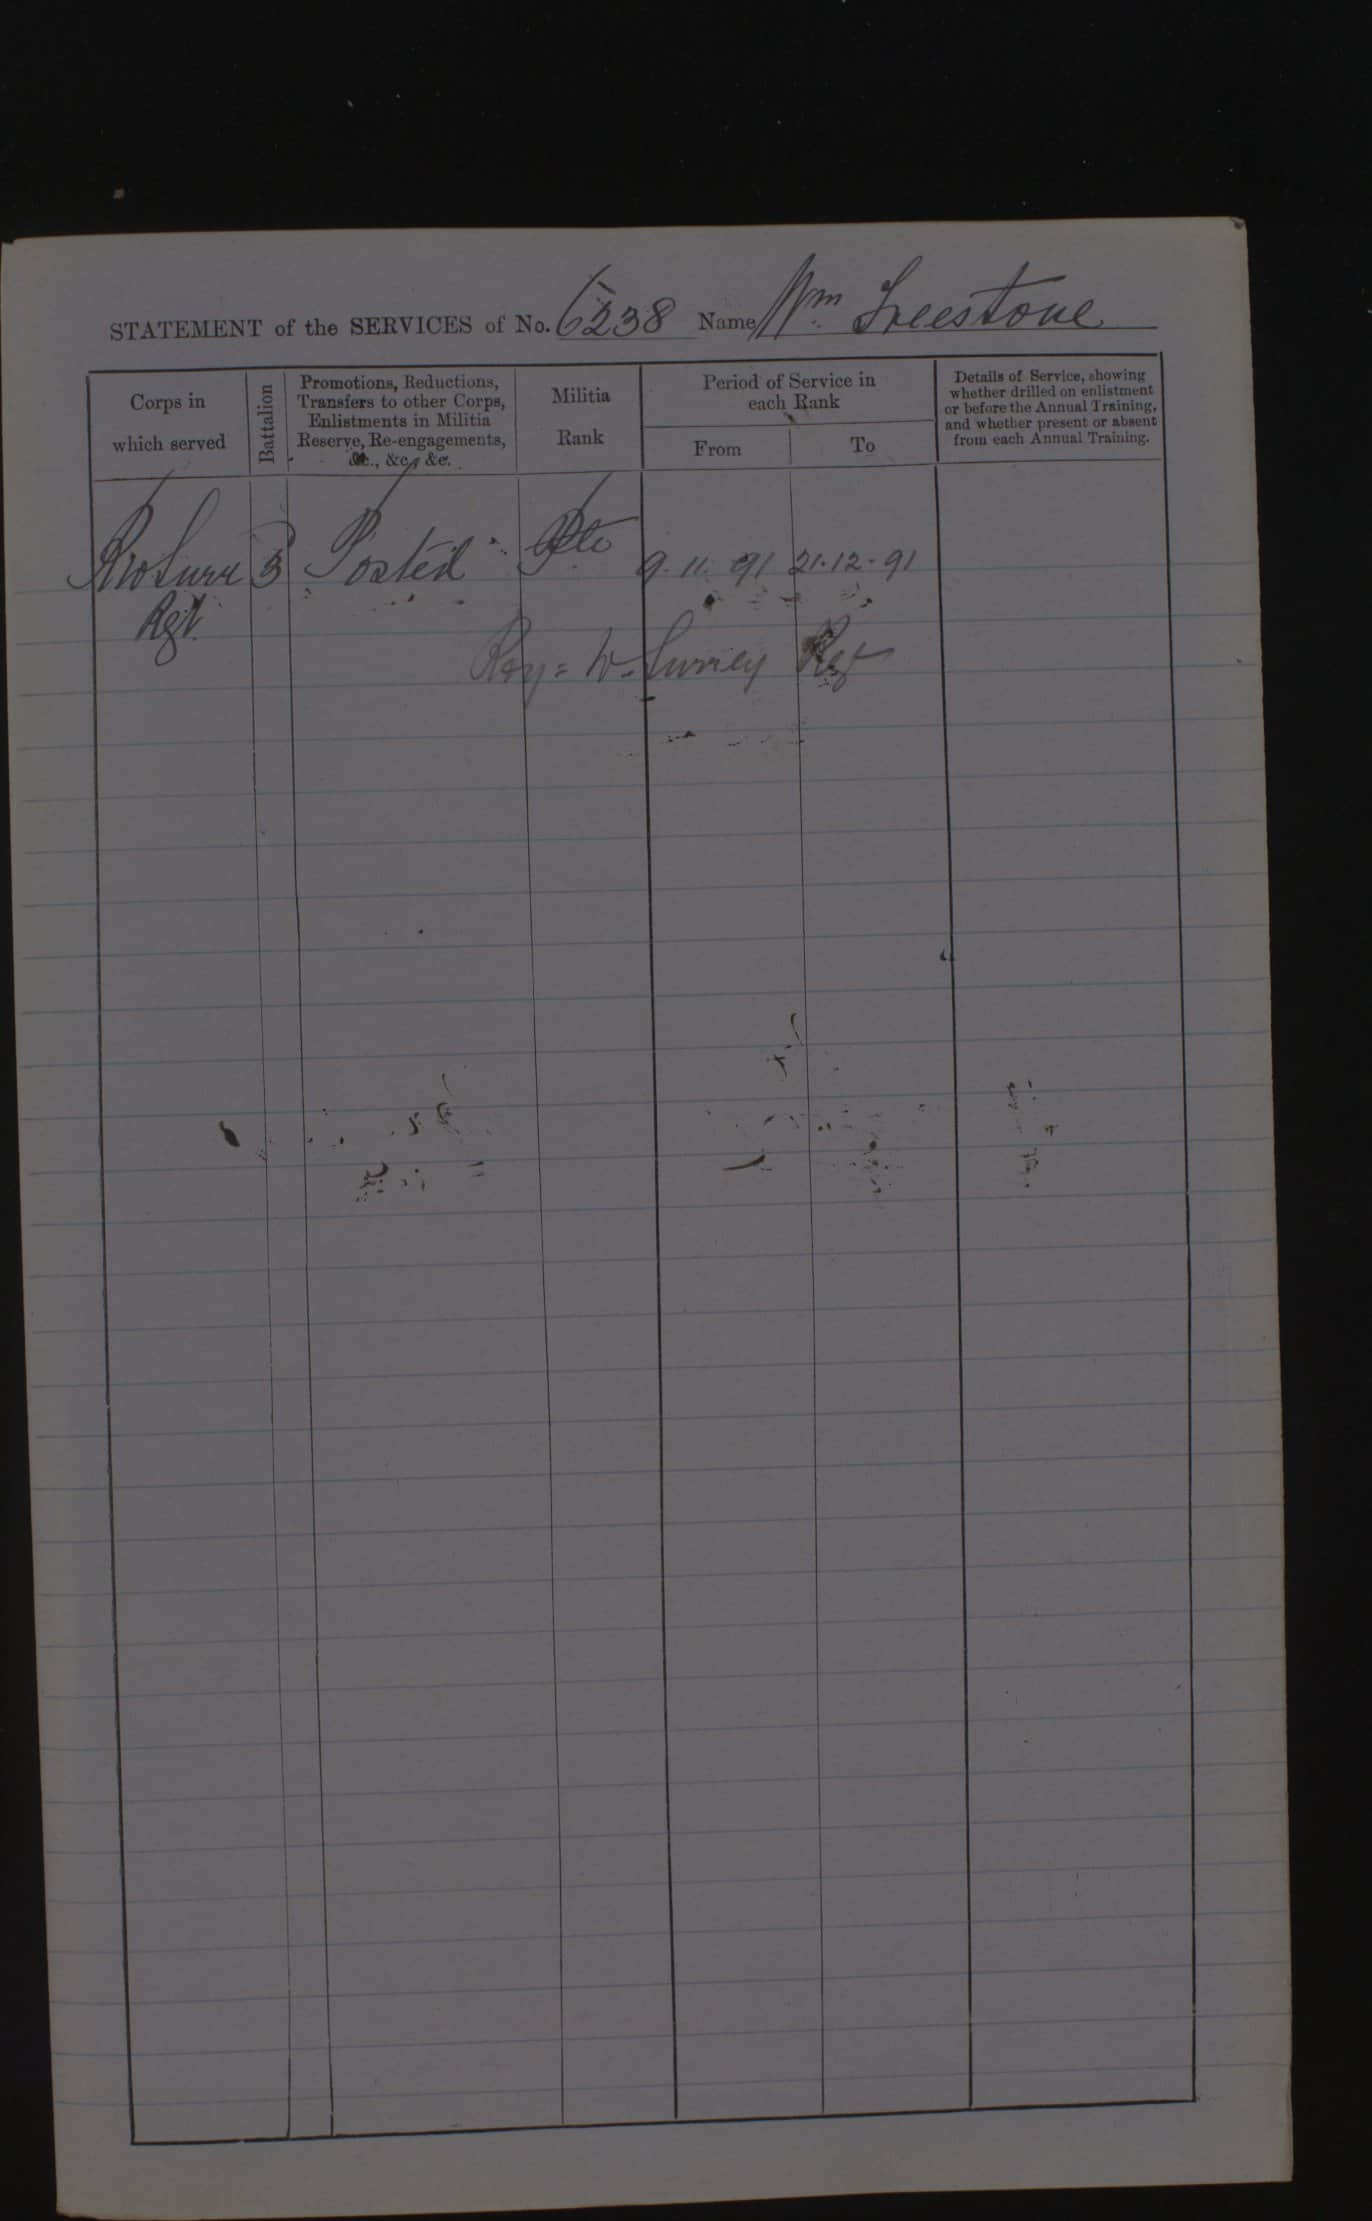 STATEMENT of the SERVICES of No. 6238 Name Wm Freestone
Corps in
which served
Battalion
Promotions, Reductions,
Transfers to other Corps,
Enlistments in Militia
Reserve, Re-engagements,
&c., &c., &c.
Militia
Rank
Period of Service in
each Rank
From
To
Details of Service, showing
whether drilled on enlistment
or before the Annual Training,
and whether present or absent
from each Annual Training.
3 Posted Pte 9.11.91 21.12.91
Rgt
W. Surrey Rgt